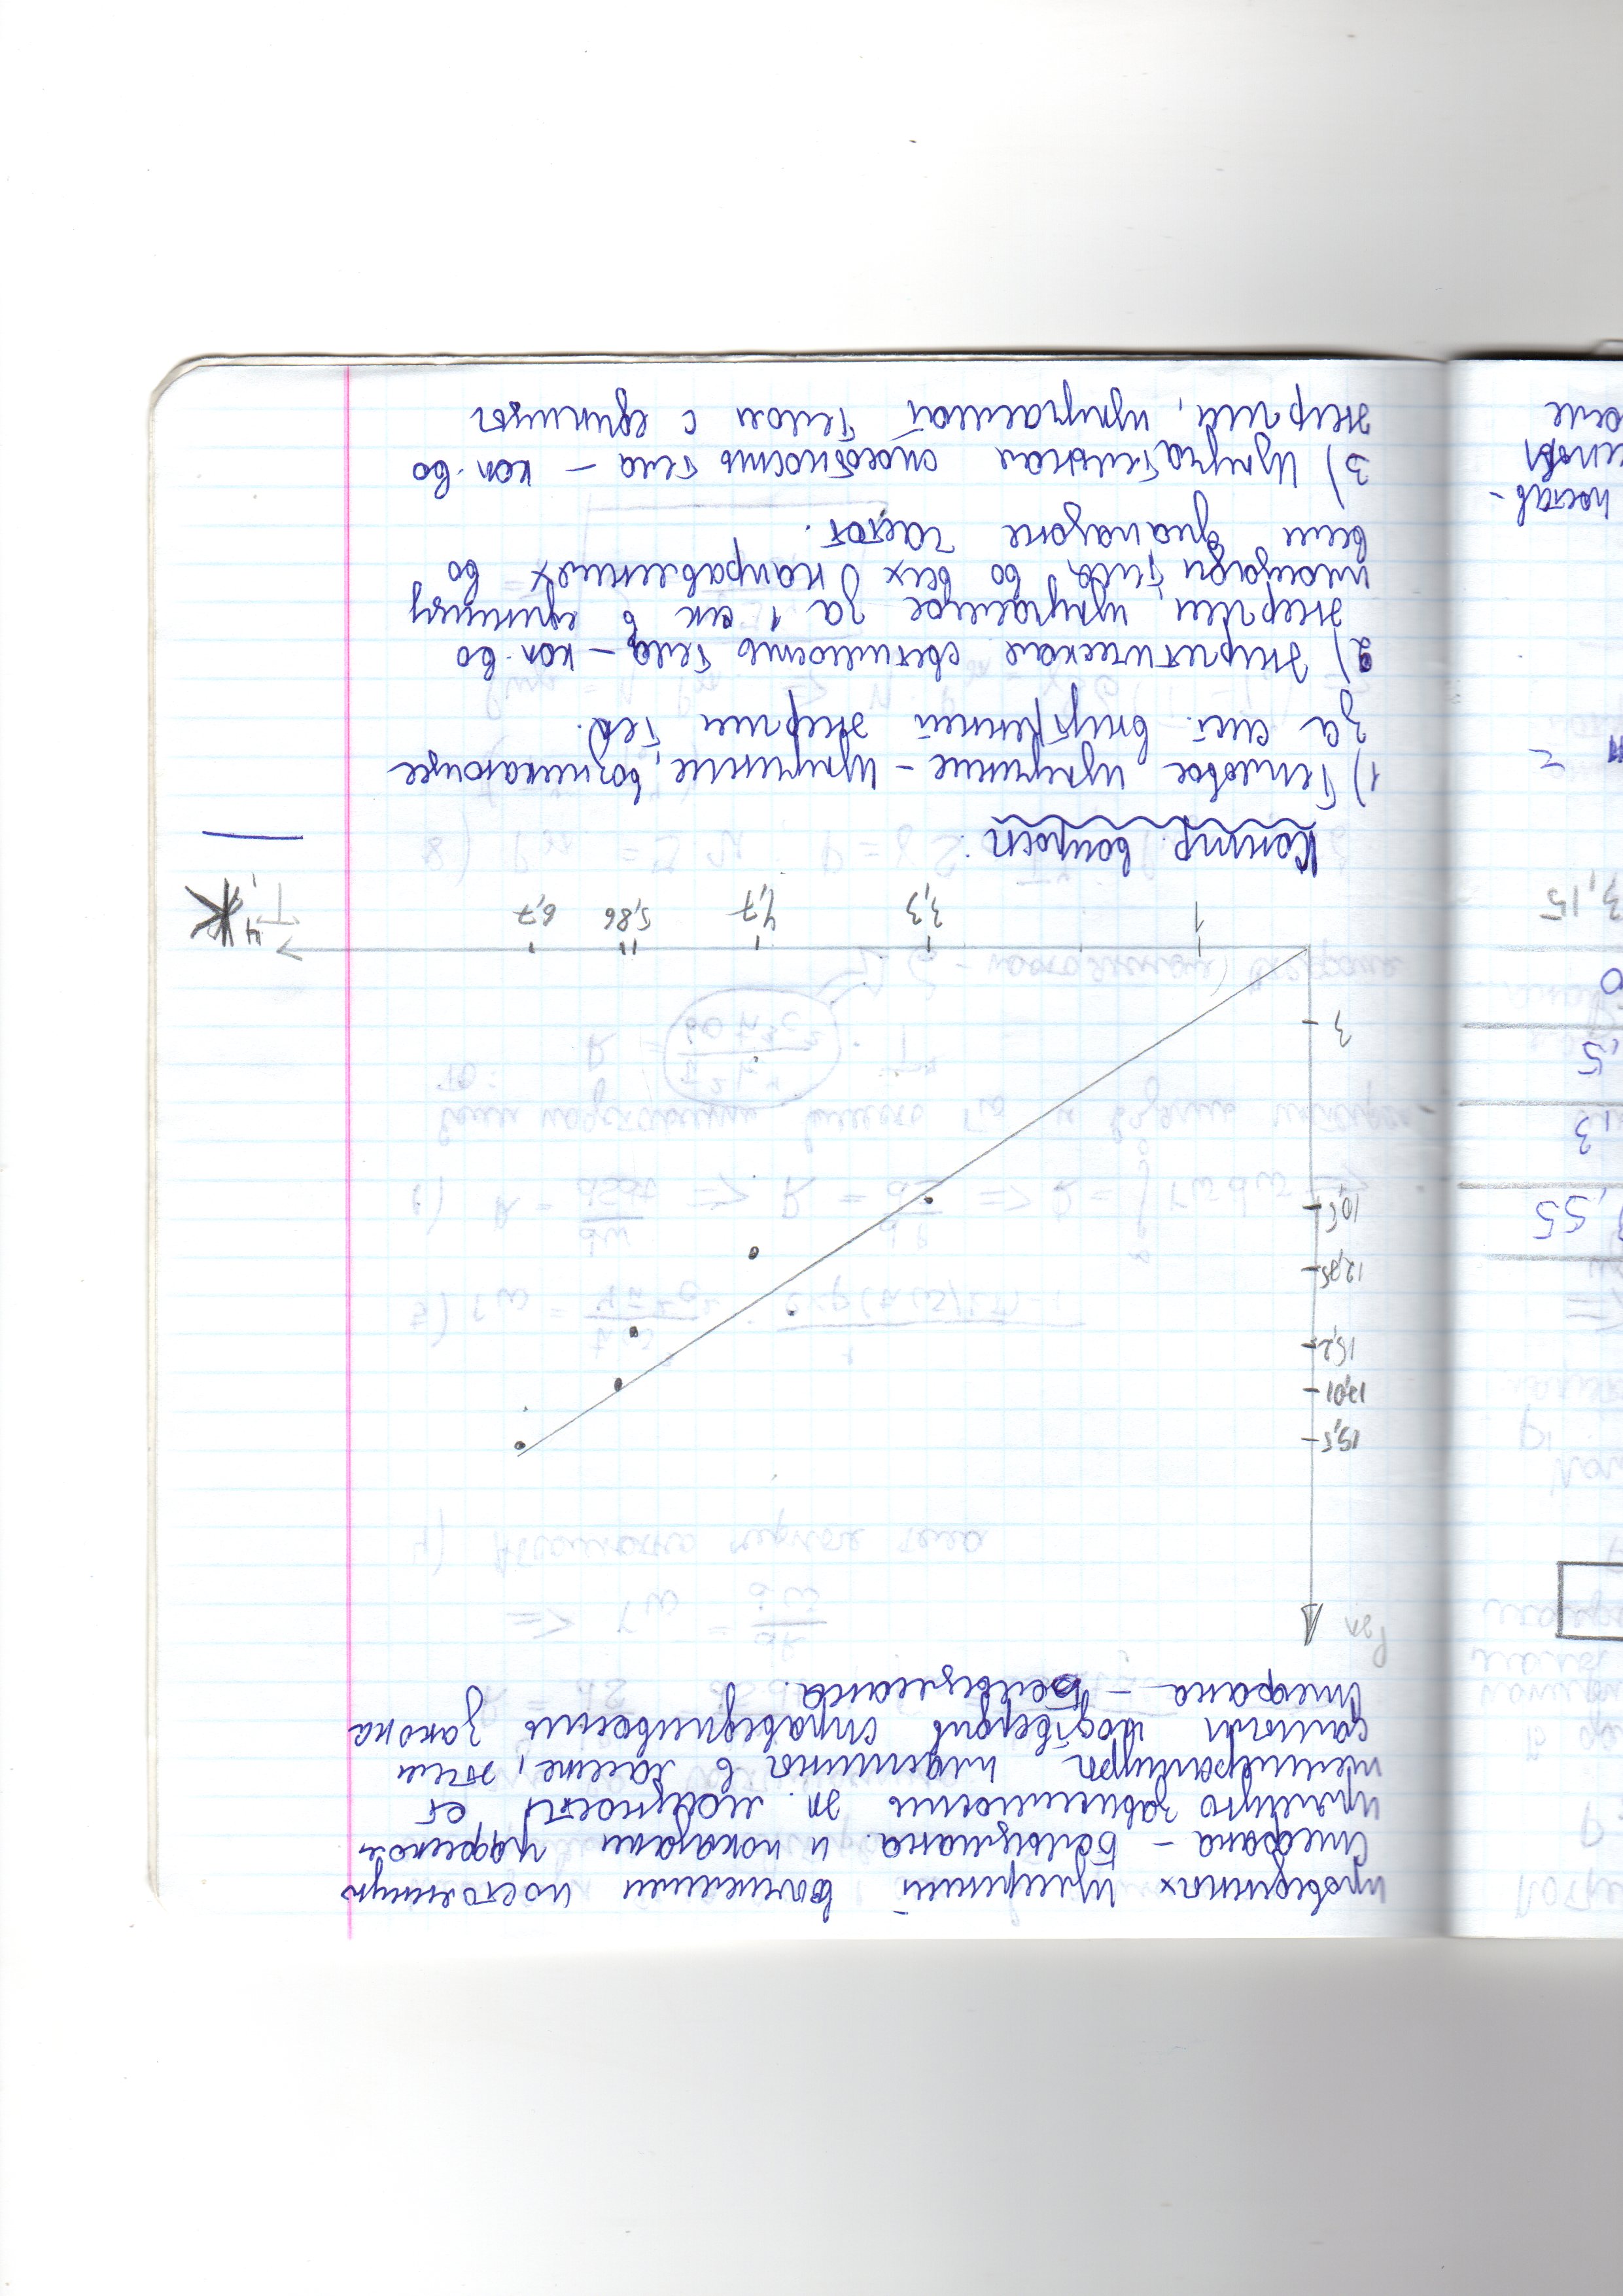 проведенных измерений вычислили постоянную
Стефана - Больцмана. и показали графиком
прямую зависимость эл. мощности от
температуры пластины в лампе, этим
самым подтвердив справедливость закона
Стефана - Больцмана.
Pэл
19,5
17,01
15,2
12,75
10,5
3
1 3,3 4,7 5,86 6,7 T⁴, К
Контр. вопросы:
1) Тепловое излучение - излучение, возникающее
за счет. внутренней энергии тел.
2) Энергетическая светимость тела - кол-во
энергии, излучаемое за 1 сек в единицу
площади тела во всех направлениях во
всем диапазоне частот.
3) Излучательная способность тела - кол-во
энергии, излучаемой телом с единицы
,55
,3
,5
0
3,15
постав-